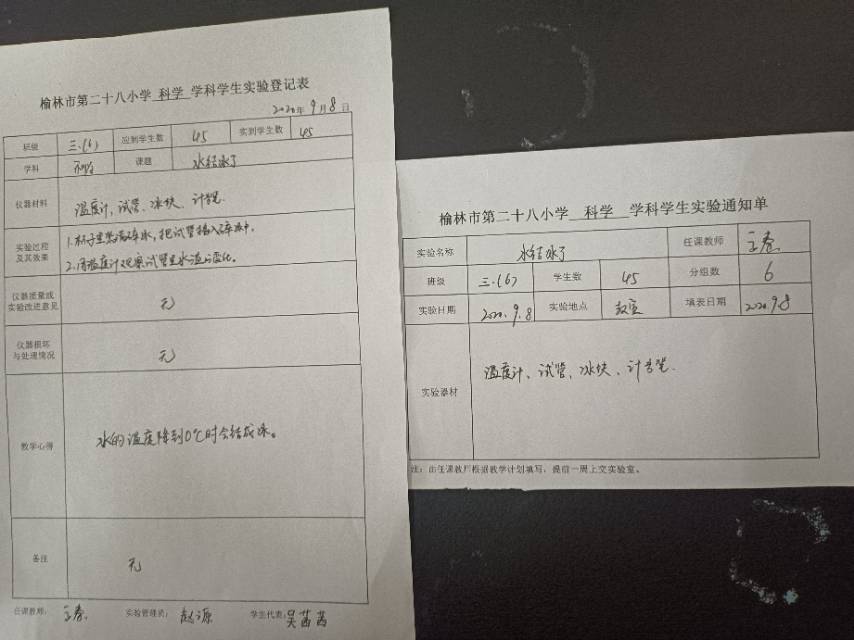 榆林市第二十八小学 科学 学科学生实验登记表
2020年9月8日
班级 三.(6) 应到学生数 45 实到学生数 45
学科 科学 课题 水结冰了
仪器材料 温度计,试管、冰块、计
实验过程及其效果 1.杯子里装满碎冰,把试管插入碎冰中。
2.用温度计观察试管里水温变化。
仪器质量或实验改进意见 无
仪器损坏与处理情况 无
教学心得 水的温度降到0℃时会结成冰。
备注 无
任课教师: 王春 实验管理员: 赵源 学生代表: 吴茜茜
榆林市第二十八小学 科学 学科学生实验通知单
实验名称 水结冰了 任课教师 王春
班级 三.(6) 学生数 45 分组数 6
实验日期 2020.9.8 实验地点 教室 填表日期 2020.9.8
实验器材 温度计、试管、冰块、计
注:由任课教师根据教学计划填写,提前一周上交实验室。